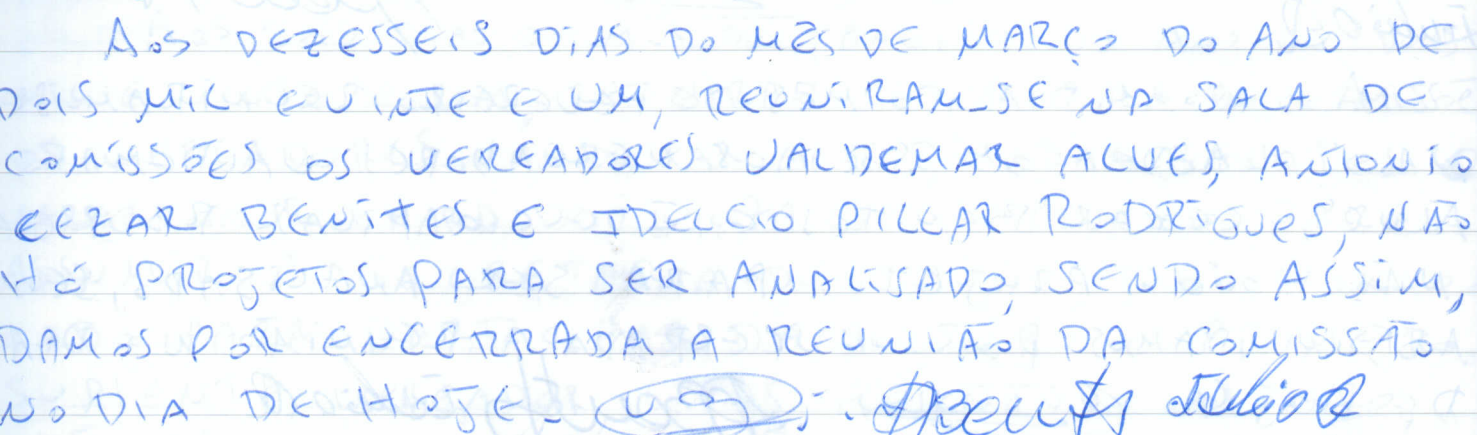 Aos DEZESSEIS DIAS DO MÊS DE MARÇO DO ANO DE
DOIS MIL E VINTE E UM, REUNIRAM-SE NA SALA DE
COMISSÕES OS VEREADORES VALDEMAR ALVES, ANTONIO
CEZAR BENITES E IDELCIO PILLAR RODRIGUES, NÃO
HÁ PROJETOS PARA SER ANALISADO, SENDO ASSIM,
DAMOS POR ENCERRADA A REUNIÃO DA COMISSÃO
NO DIA DE HOJE.